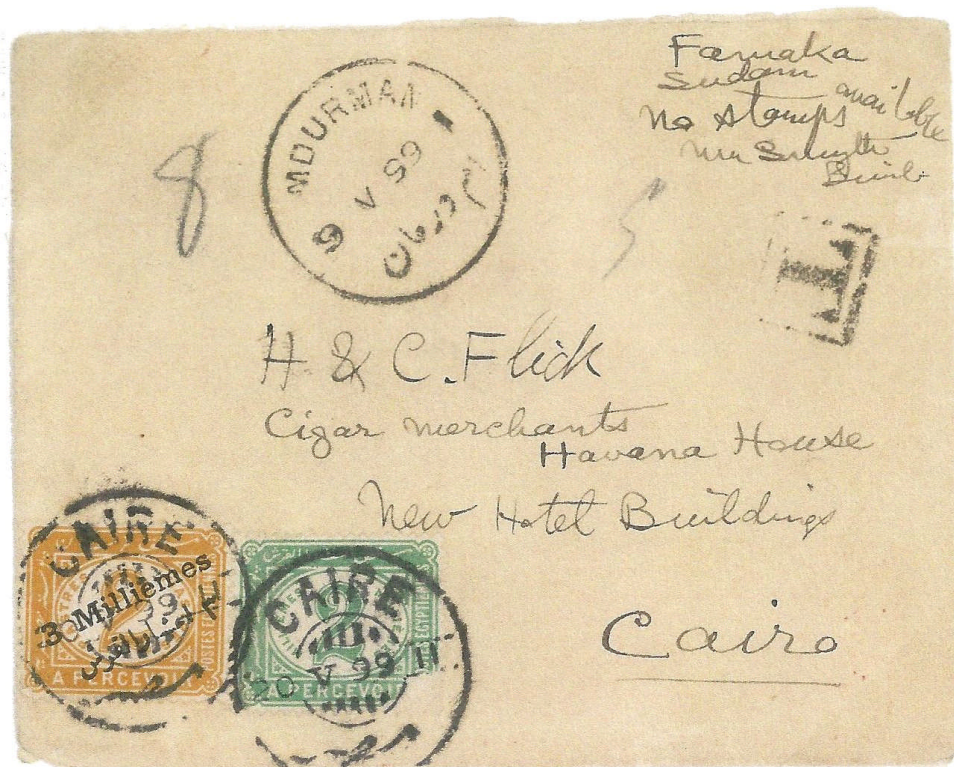 Famaka
Sudan
No stamps available
8
MDURMAN
9 V 99
أم درمان
T
H. & C. Flick
Cigar merchants
Havana House
New Hotel Buildings
Cairo
CAIRE
3 Millièmes
A PERCEVOIR
CAIRE
20 V 99 II
A PERCEVOIR